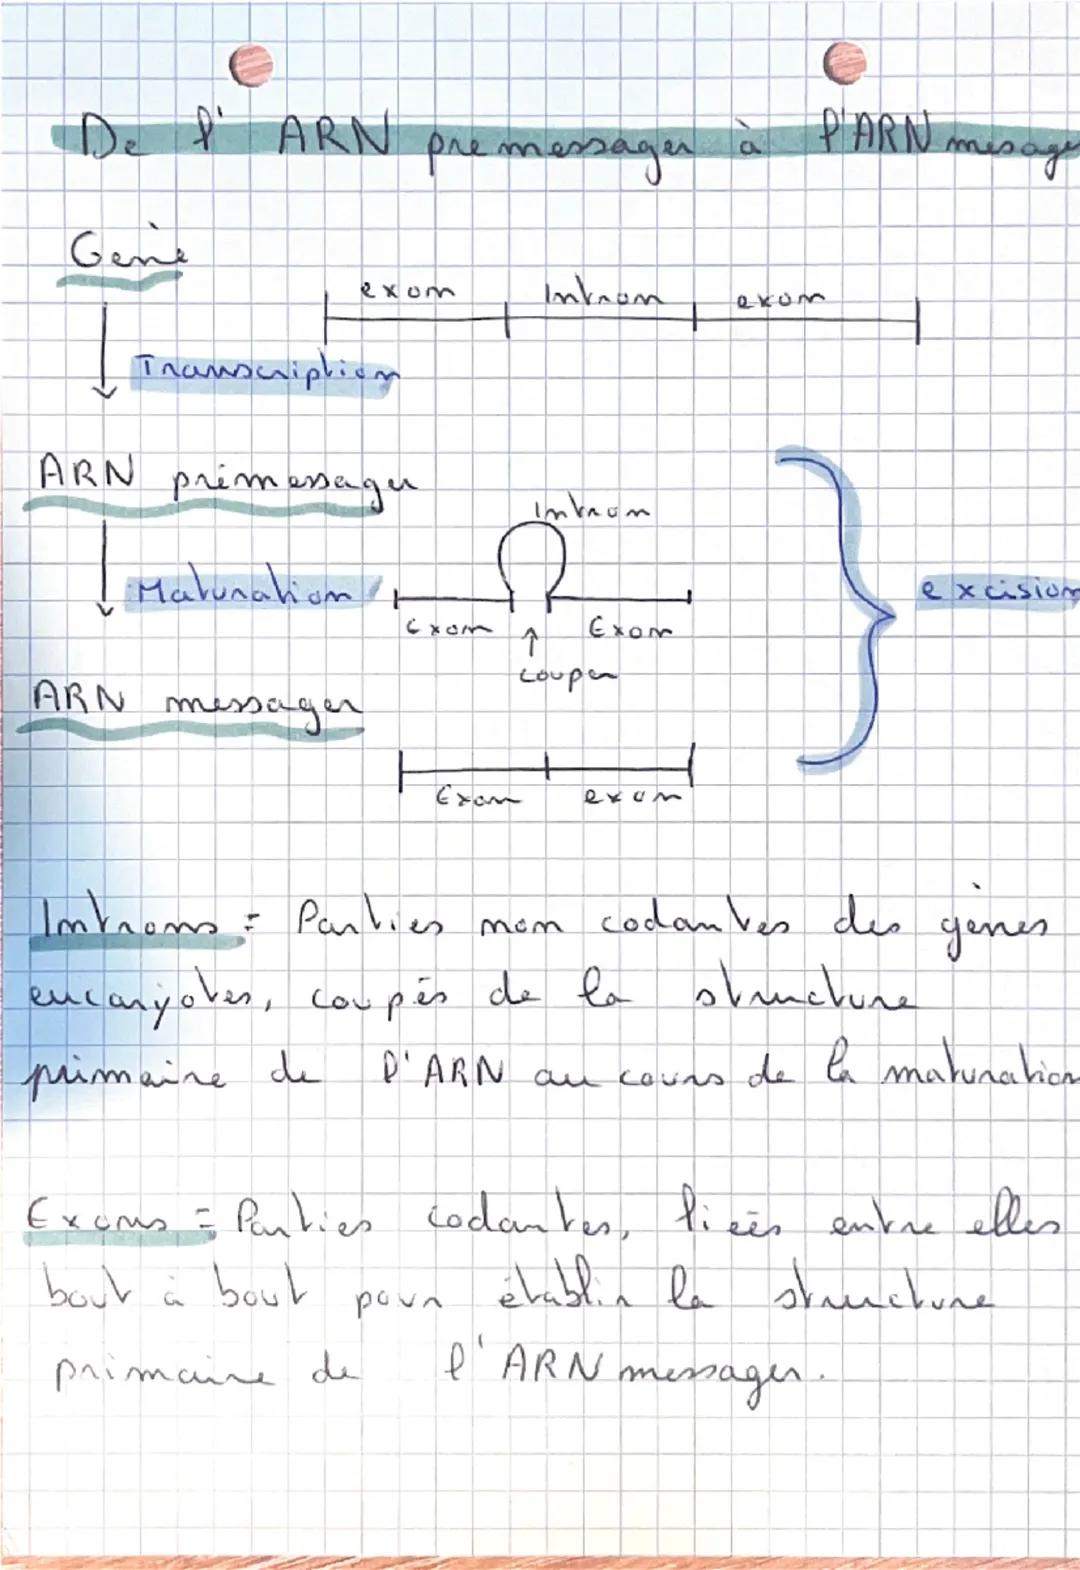 De l' ARN premessager à l'ARN mesager
Gène
exon Intron exon
Transcription
ARN prémessager
Intron
Maturation
excision
Exon Exon
couper
ARN messager
Exon exon
Introns = Parties non codantes des gènes
eucaryotes, coupés de la structure
primaire de l'ARN au cours de la maturation
Exons = Parties codantes, liées entre elles
bout à bout pour établir la structure
primaire de l'ARN messager.